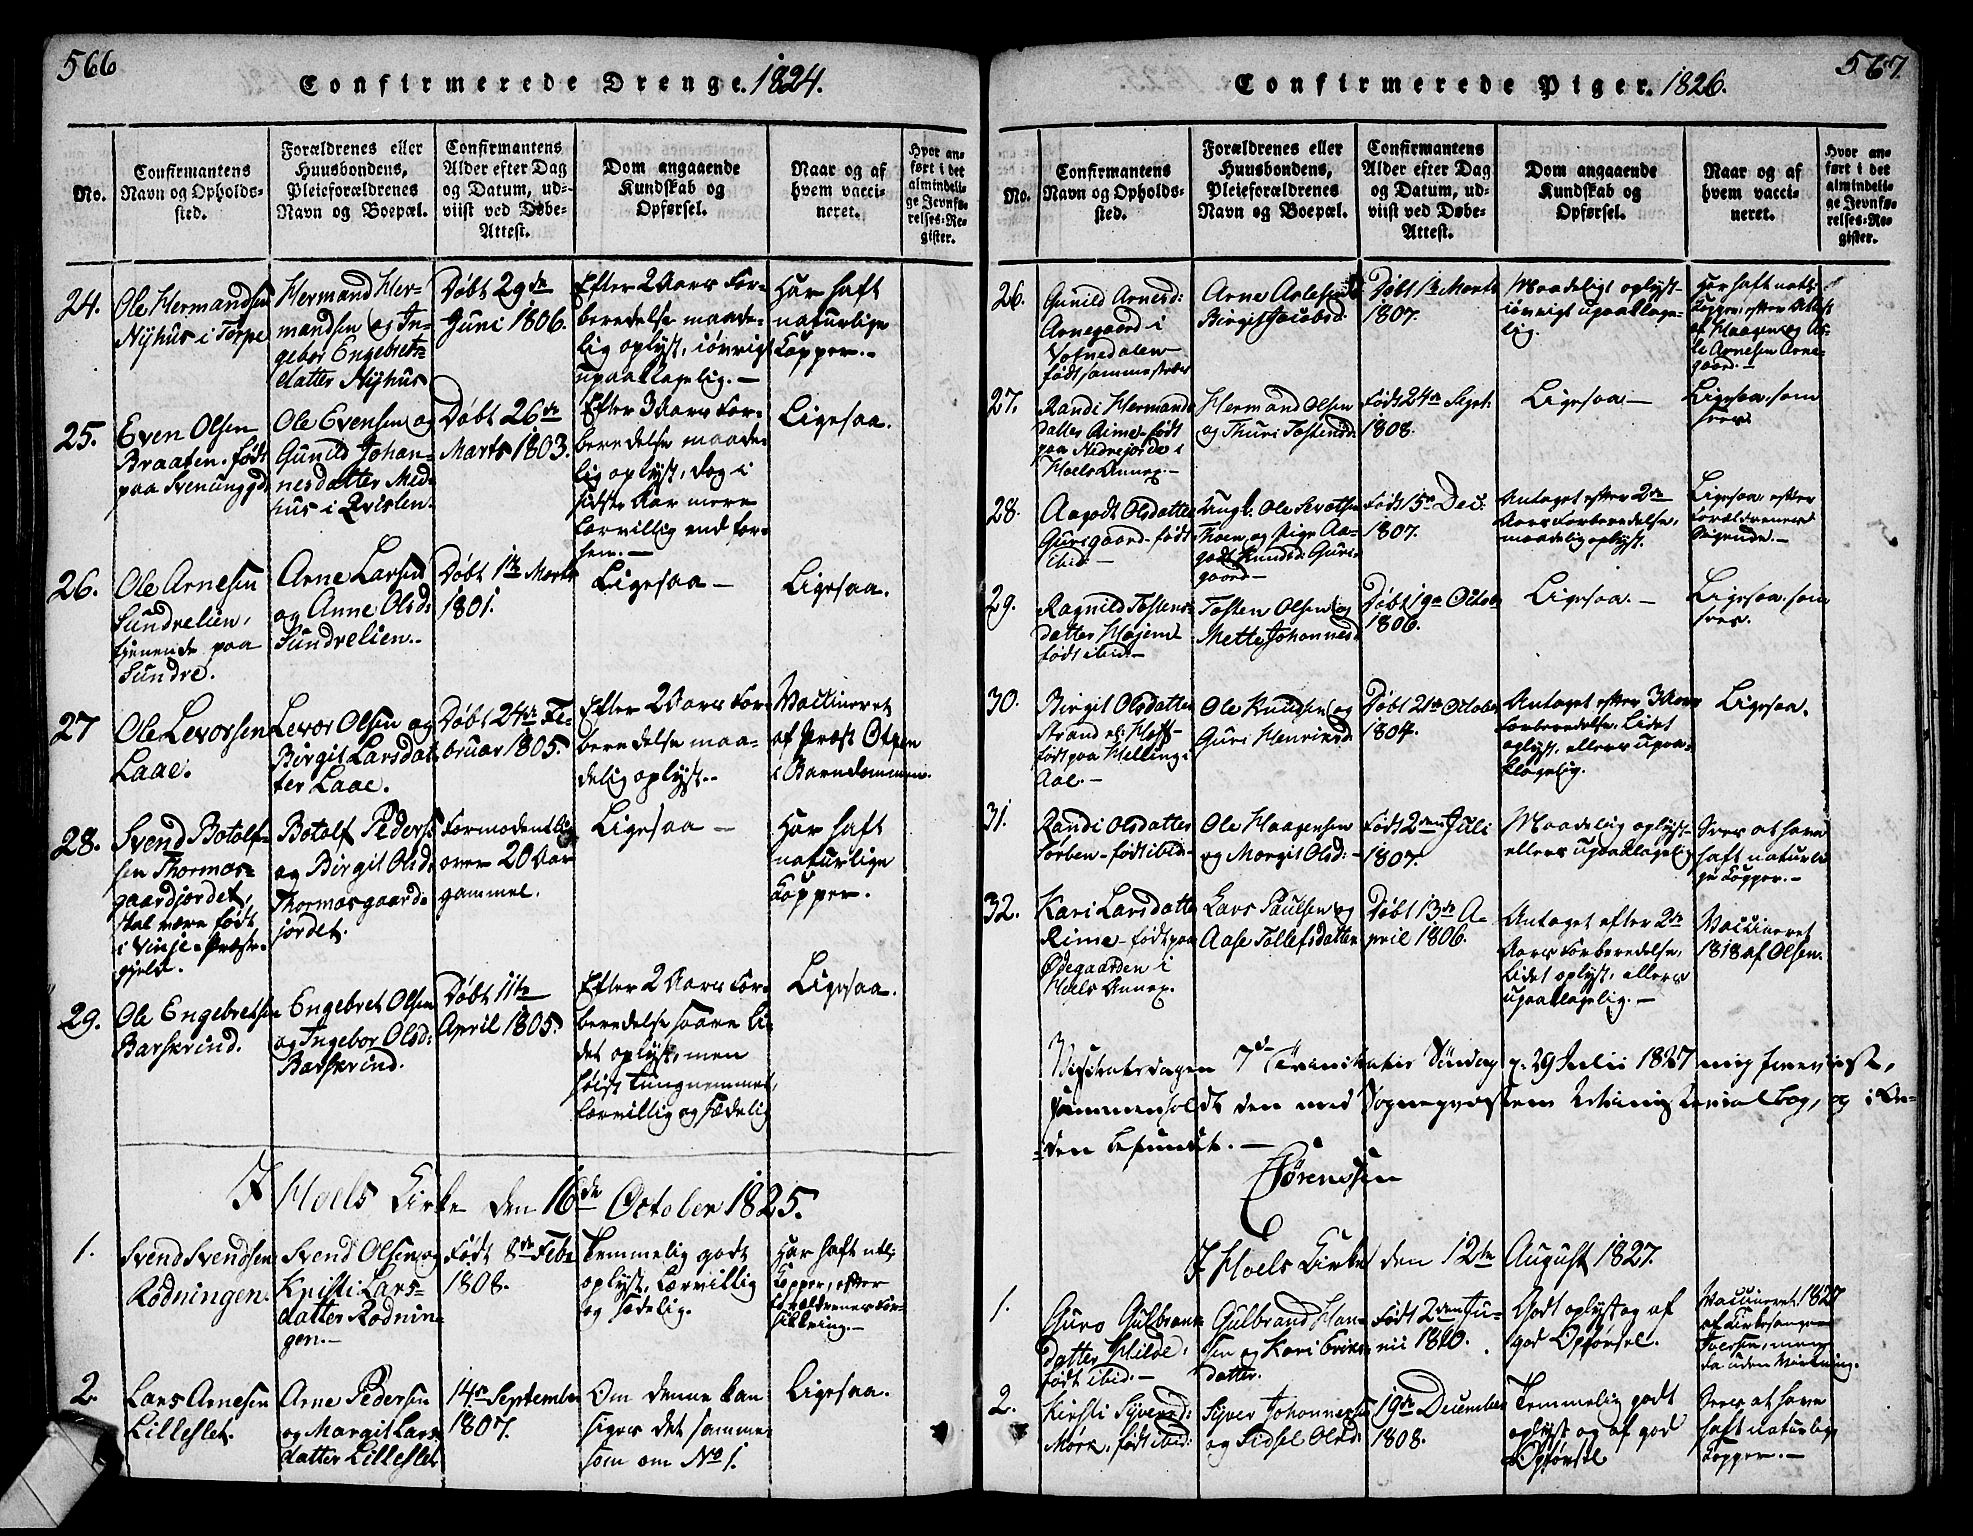 566
Confirmerede Drenge. 1824.
No.
Confirmantens
Navn og Opholds-
sted.
Forældrenes eller
Huusbondens,
Pleieforældrenes
Navn og Boepæl.
Confirmantens
Alder efter Dag
og Datum, ud-
viist ved Døbe-
Attest.
Dom angaaende
Kundskab og
Opførsel.
Naar og af
hvem vacci-
neret.
Hvor an-
ført i det
almindeli-
ge Jevnfø-
relses-Re-
gister.
24.
Ole Hermandsen
Nyhus i Torpe
Hermand Her-
mandsen og In-
gebor Engebret-
datter Nyhus
Døbt 29de
Juni 1806.
Efter 2 Aars For-
beredelse maade-
lig oplyst, iøvrigt
upaaklagelig. —
Har haft
naturlige
Kopper. -
25.
Even Olsen
Braaten. født
paa Svenunggd.
Ole Evensen og
Gunild Johan-
nesdatter Mid-
hus i Qvislen.
Døbt 26de
Marts 1803.
Efter 3 Aars For-
beredelse maade-
lig oplyst, dog i
sidste Aar mere
lærvillig end for-
hen. —
Ligesaa.
26.
Ole Arnesen
Sundrelien,
tjenende paa
Sundre.
Arne Larsen
og Anne Olsd:
Sundrelien.
Døbt 1te Marts
1801.
Ligesaa —
Ligesaa.
27
Ole Levorsen
Laae.
Levor Olsen og
Birgit Larsdat-
ter Laae.
Døbt 24de Fe-
bruar 1805.
Efter 2 Aars For-
beredelse maa-
delig oplyst. -
Vaccineret
af Præst
i Barndommen.
28.
Svend Botolf-
sen Thormos-
gaardjordet,
skal være født
i Vinje-Præste-
gjeld.
Botolf Peders:
og Birgit Olsd:
Thormosgaard-
jordet.
Formodentlig
over 20 Aar
gammel.
Ligesaa —
Har haft
naturlige
Kopper.
29.
Ole Engebretsen
Barskrind.
Engebret Olsen
og Ingebor Olsd:
Barskrind.
Døbt 11te
April 1805.
Efter 2 Aars For-
beredelse saare li-
det oplyst, men
høist tungnemmet,
lærvillig og sædelig
Ligesaa.
I Hoels Kirke den 16de October 1825.
1.
Svend Svendsen
Rodningen.
Svend Olsen og
Kristi Lars-
datter Rodnin-
gen. -
Født 8de Febr
1808.
Temmelig godt
oplyst, Lærvillig
og sædelig.
Har haft ntl:
Kopper, efter
Forældrenes For-
sikkring. -
2.
Lars Arnesen
Lilleslet.
Arne Pedersen
og Margit Lars-
datter Lilleslet
14de September
1807.
Om denne kan
siges det samme
som om No 1.
Ligesaa.
567
Confirmerede Piger. 1826.
No.
Confirmantens
Navn og Opholds-
sted.
Forældrenes eller
Huusbondens,
Pleieforældrenes
Navn og Boepæl.
Confirmantens
Alder efter Dag
og Datum, ud-
viist ved Døbe-
Attest.
Dom angaaende
Kundskab og
Opførsel.
Naar og af
hvem vacci-
neret.
Hvor an-
ført i det
almindeli-
ge Jevnfø-
relses-Re-
gister.
26.
Gunild Arnesd:
Arnegaard i
Votnedalen
født sammesteds
Arne Aslesen
Birgit Jacobsd.
Døbt 1te Marts
1807.
Maadeligt oplyst-
iøvrigt upaaklage-
lig.
Har haft natl:
Kopper, efter Attest
af Haagen og As-
le Arnesen Arne-
gaard. -
27.
Randi Hermands-
datter Rime - født
paa Nedrejorde i
Hoels Annex. -
Hermand Olsen
og Thuri Tostensd.
Født 24de Sept.
1808.
Ligesaa. —
Ligesaa. som
sees
28.
Aagodt Olsdatter
Gursgaard - født
ibid. -
Ungk. Ole
og Pige Aa-
godt Knudsd. Gurs-
gaard -
Født 15de Dec:
1807.
Antaget efter 2de
Aars Forberedelse,
maadelig oplyst.
Ligesaa, efter
Forældrenes
Sigende. -
29.
Ragnild Tostens-
datter Hojem
født ibid. -
Tosten Olsen og
Mette Johannesd.
Døbt 19de Octob
1806.
Ligesaa. —
Ligesaa. som
sees.
30.
Birgit Olsdatter
Strand
født paa Helling i
Aal. -
Ole Knudsen og
Guri Henriksd.
Døbt 21de October
1804.
Antaget efter 3 Aars
Forberedelse. Lidet
oplyst, ellers upaa-
klagelig.
Ligesaa.
31.
Randi Olsdatter
Torben - født ibid. -
Ole Haagensen
og Margit Olsd: -
Født 2den Juli
1807.
Maadelig oplyst-
ellers upaaklagelig
Sees at have
haft naturli-
ge Kopper. -
32.
Kari Larsdatter
Rime - født paa
Ødegaarden i
Hoels Annex.
Lars Paulsen og
Aase Tollefsdatter
Døbt 13de A-
pril 1806.
Antaget efter 2de
Aars Forberedelse,
Lidet oplyst, ellers
upaaklagelig. -
Vaccineret
1818 af Olsen.
Visitatsdagen 7de Trinitatis Søndag d. 29 Julii 1827 mig foreviist,
sammenholdt den med Sognepræstens Ministerialbog, og i Or-
den befundet. —
Sørenssen
I Hoels Kirke den 12te August 1827.
1.
Guro Gulbrans-
datter Hilde,
født ibid. -
Gulbrand Han-
sen og Kari Eriks-
datter.
Født 2den Ju-
nii 1810.
Godt oplyst og af
god Opførsel.
Vaccineret 1827
af Kirkesanger
Iversen, men
da uden Virkning.
2.
Kirsti Syversd:
Mørk, født ibid:
Syver Johannessen
og Sidsel Olsd:
19de December
1808.
Temmelig godt
oplyst og af god
Opførsel
Sees at have
haft naturlige
Kopper. -